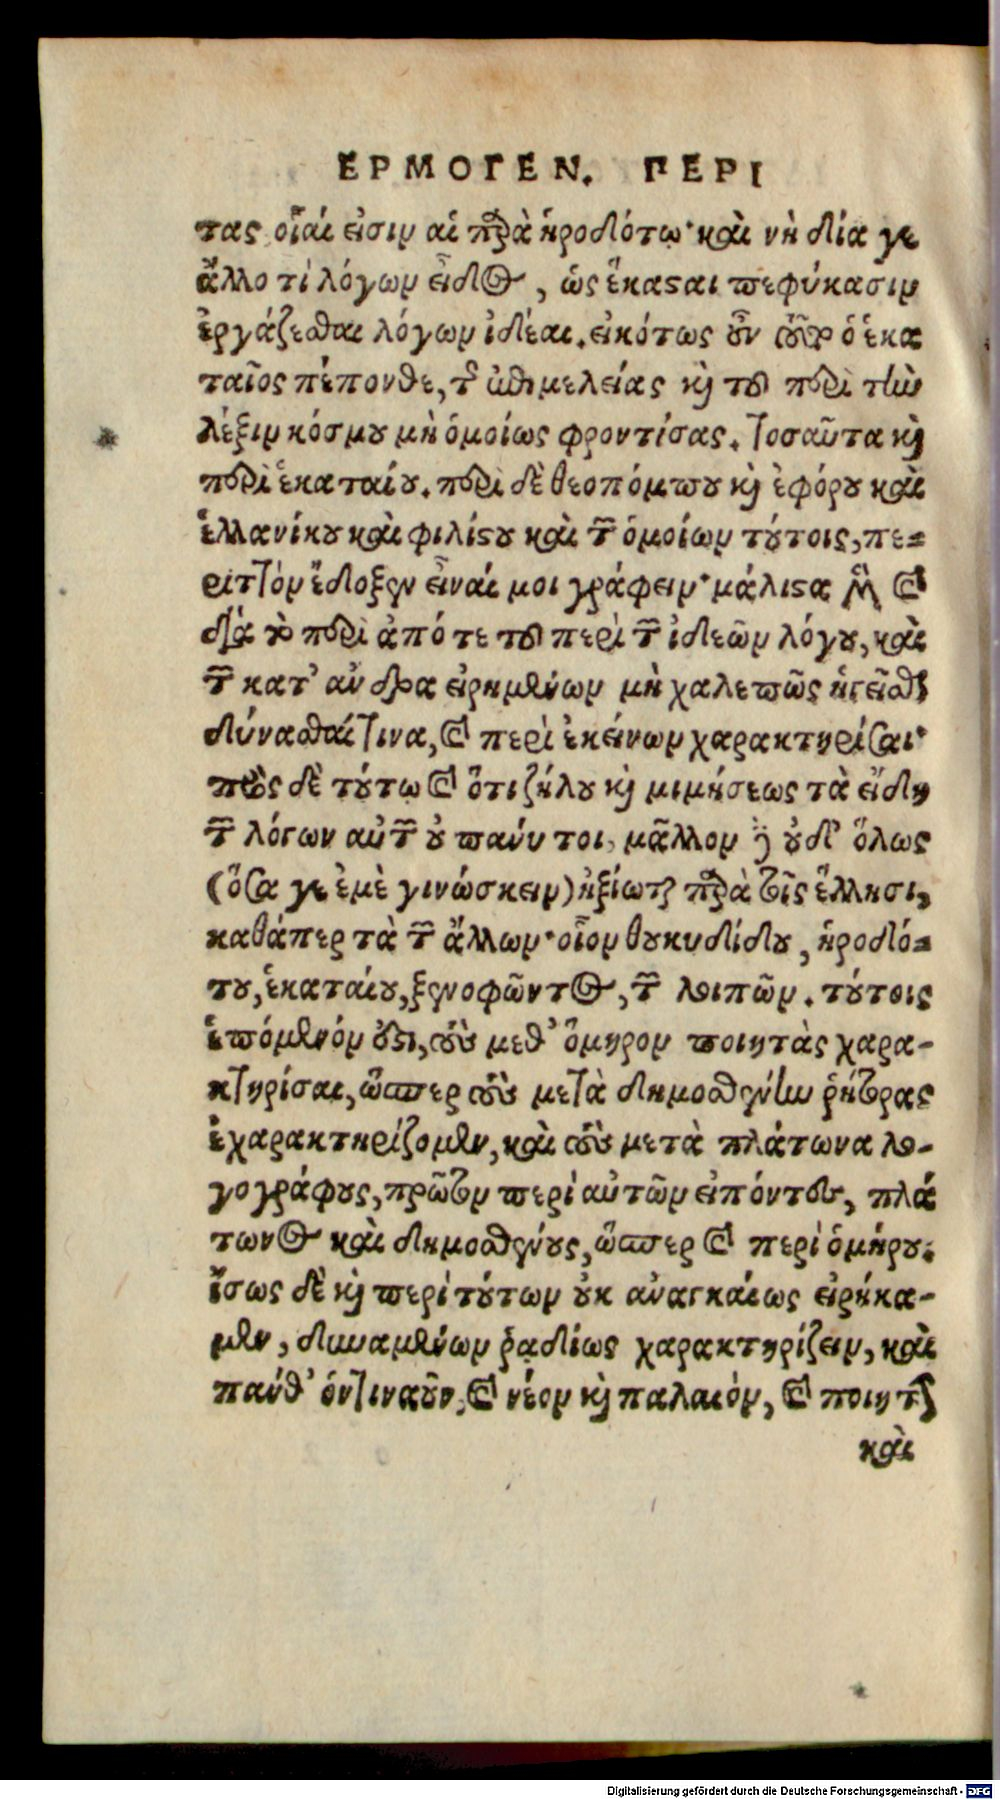 ΕΡΜΟΓΕΝ. ΠΕΡΙ
τας οἷαί εἰσιν αἱ παρὰ ἡροδότῳ· καὶ νὴ δία γε
ἄλλο τὶ λόγων εἶδος, ὡς ἕκασται πεφύκασιν
ἐργάζεσθαι λόγων ἰδέαι. εἰκότως οὖν αὐτὸ ὁ ἑκα
ταῖος πέπονθε, τῆς ἐπιμελείας καὶ τοῦ περὶ τὴν
λέξιν κόσμου μὴ ὁμοίως φροντίσας. Τοσαῦτα καὶ
περὶ ἑκαταίου. περὶ δὲ θεοπόμπου καὶ ἐφόρου καὶ
ἑλλανίκου καὶ φιλίστου καὶ τῶν ὁμοίων τούτοις, πε-
ριττὸν ἔδοξεν εἶναί μοι γράφειν· μάλιστα μὲν καὶ
διὰ τὸ περὶ ἀπό τε τοῦ περὶ τῶν ἰδεῶν λόγου, καὶ
τῶν κατ' ἄνδρα εἰρημένων μὴ χαλεπῶς ἡγεῖσθαι
δύνασθαί τινα, καὶ περὶ ἐκείνων χαρακτηρίσαι·
πρὸς δὲ τούτῳ καὶ ὅτι ζήλου καὶ μιμήσεως τὰ εἴδη
τῶν λόγων αὐτῶν οὐ πάνυ τοι, μᾶλλον δὲ οὐδ' ὅλως
(ὅσα γε ἐμὲ γινώσκειν) ἠξίωται παρὰ τοῖς ἕλλησι,
καθάπερ τὰ τῶν ἄλλων· οἷον θουκυδίδου, ἡροδό-
του, ἑκαταίου, ξενοφῶντος, τῶν λοιπῶν. τούτοις
ἑπόμενόν ἐστι, τοὺς μεθ' ὅμηρον ποιητὰς χαρα-
κτηρίσαι, ὥσπερ τοὺς μετὰ δημοσθένην ῥήτορας
ἐχαρακτηρίζομεν, καὶ τοὺς μετὰ πλάτωνα λο-
γογράφους, πρῶτον περὶ αὐτῶν εἰπόντες, πλά
τωνος καὶ δημοσθένους, ὥσπερ καὶ περὶ ὁμήρου.
ἴσως δὲ καὶ περὶ τούτων οὐκ ἀναγκαίως εἰρήκα-
μεν, δυναμένων ῥαδίως χαρακτηρίζειν, καὶ
πάνθ' ὁντιναοῦν, καὶ νέον καὶ παλαιὸν, καὶ ποιητὴν
καὶ
Digitalisierung gefördert durch die Deutsche Forschungsgemeinschaft - DFG